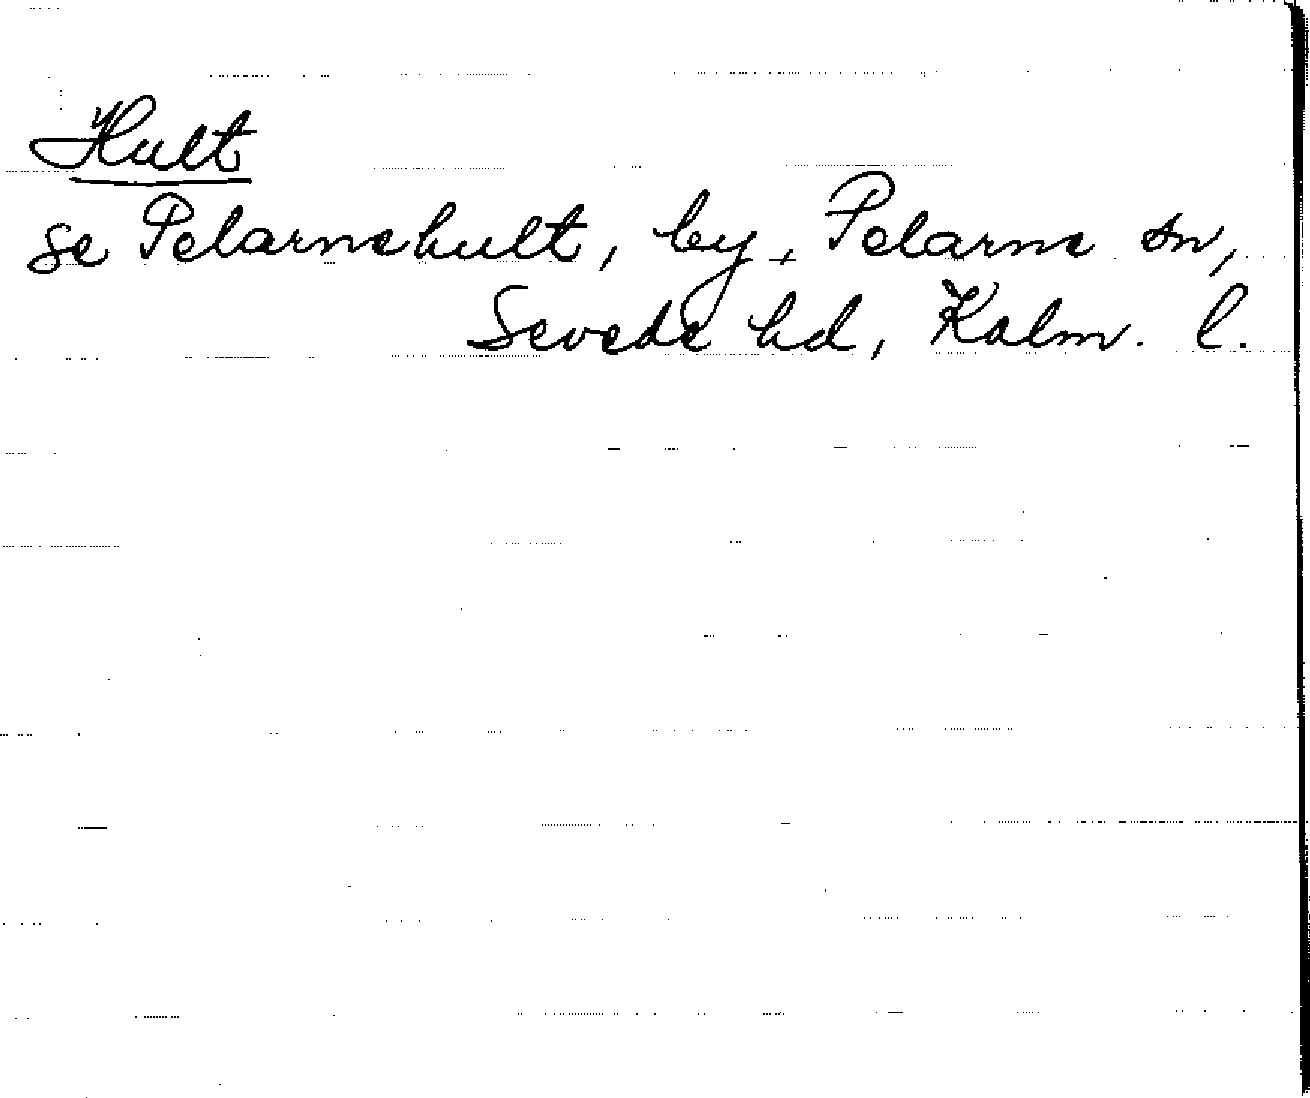 Hult
se Pelarnehult, by, Pelarne sn,
Sevede hd, Kalm. l.